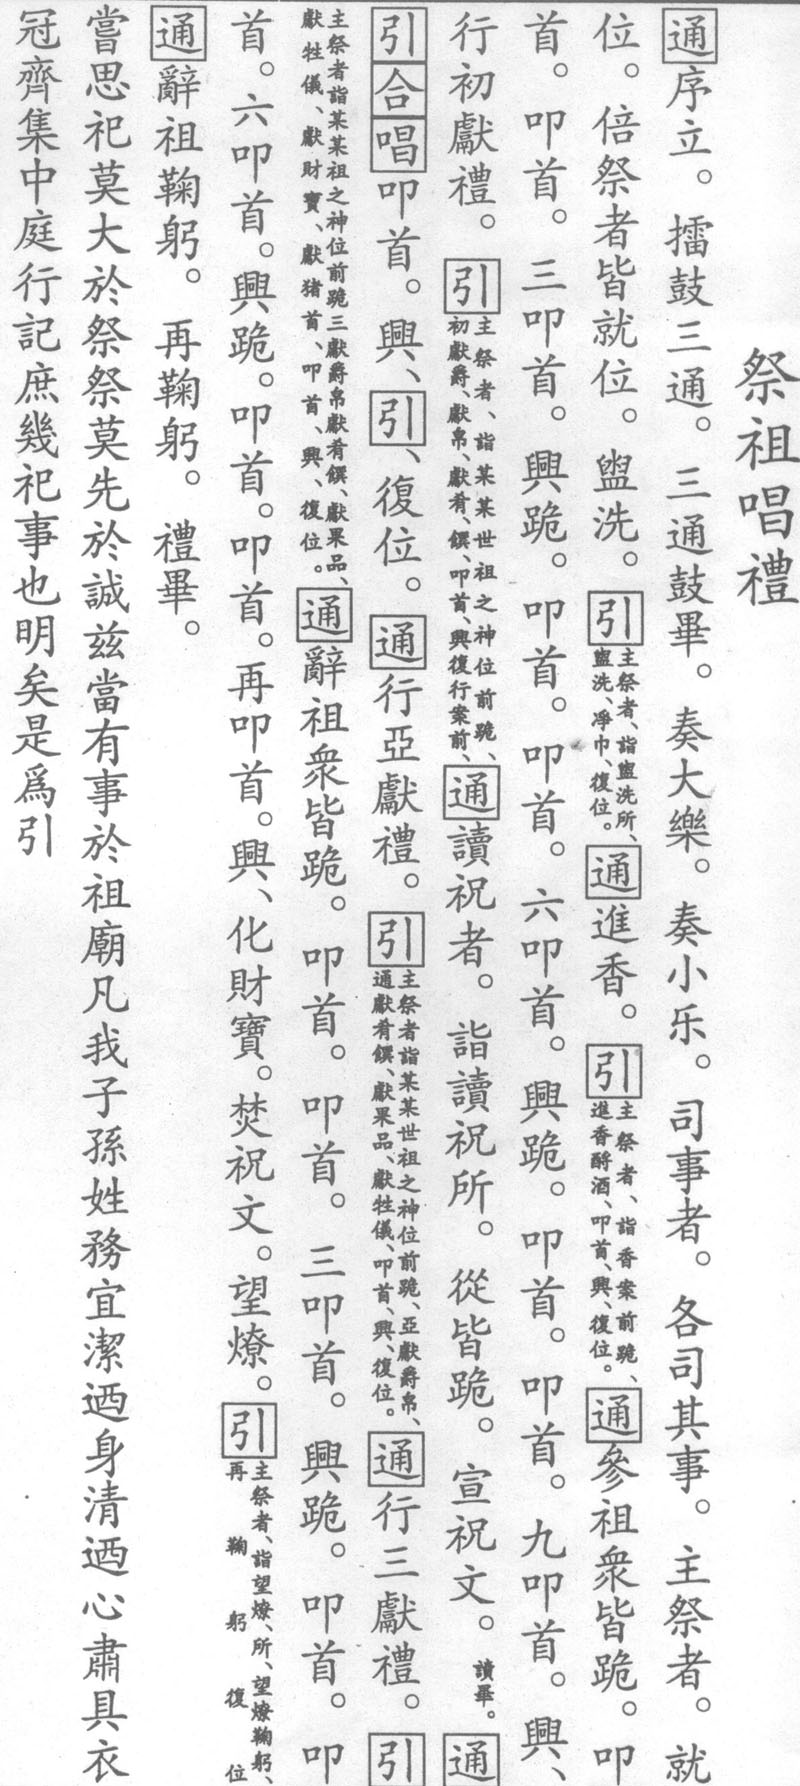 祭祖唱禮
通序立。擂鼓三通。三通鼓畢。奏大樂。奏小乐。司事者。各司其事。主祭者。就
位。倍祭者皆就位。盥洗。引主祭者、詣盥洗所、盥洗、凈巾、復位。通進香。引主祭者、詣香案前跪、進香酹酒、叩首、興、復位。通參祖衆皆跪。叩
首。叩首。三叩首。興跪。叩首。叩首。六叩首。興跪。叩首。叩首。九叩首。興、
行初獻禮。引主祭者、詣某某世祖之神位前跪、初獻爵、獻帛、獻肴、饌、叩首、興復行案前、通讀祝者。詣讀祝所。從皆跪。宣祝文。讀畢。通
引合唱叩首。興、引、復位。通行亞獻禮。引主祭者詣某某世祖之神位前跪、亞獻爵帛、通獻肴饌、獻果品、獻牲儀、叩首、興、復位。通行三獻禮。引
主祭者詣某某祖之神位前跪三獻爵帛獻肴饌、獻果品、獻牲儀、獻財寶、獻猪首、叩首、興、復位。通辭祖衆皆跪。叩首。叩首。三叩首。興跪。叩首。叩
首。六叩首。興跪。叩首。叩首。再叩首。興、化財寶。焚祝文。望燎。引主祭者、詣望燎、所、望燎鞠躬、再鞠躬復位
通辭祖鞠躬。再鞠躬。禮畢。
嘗思祀莫大於祭祭莫先於誠兹當有事於祖廟凡我子孫姓務宜潔迺身清迺心肅具衣
冠齊集中庭行記庶幾祀事也明矣是爲引